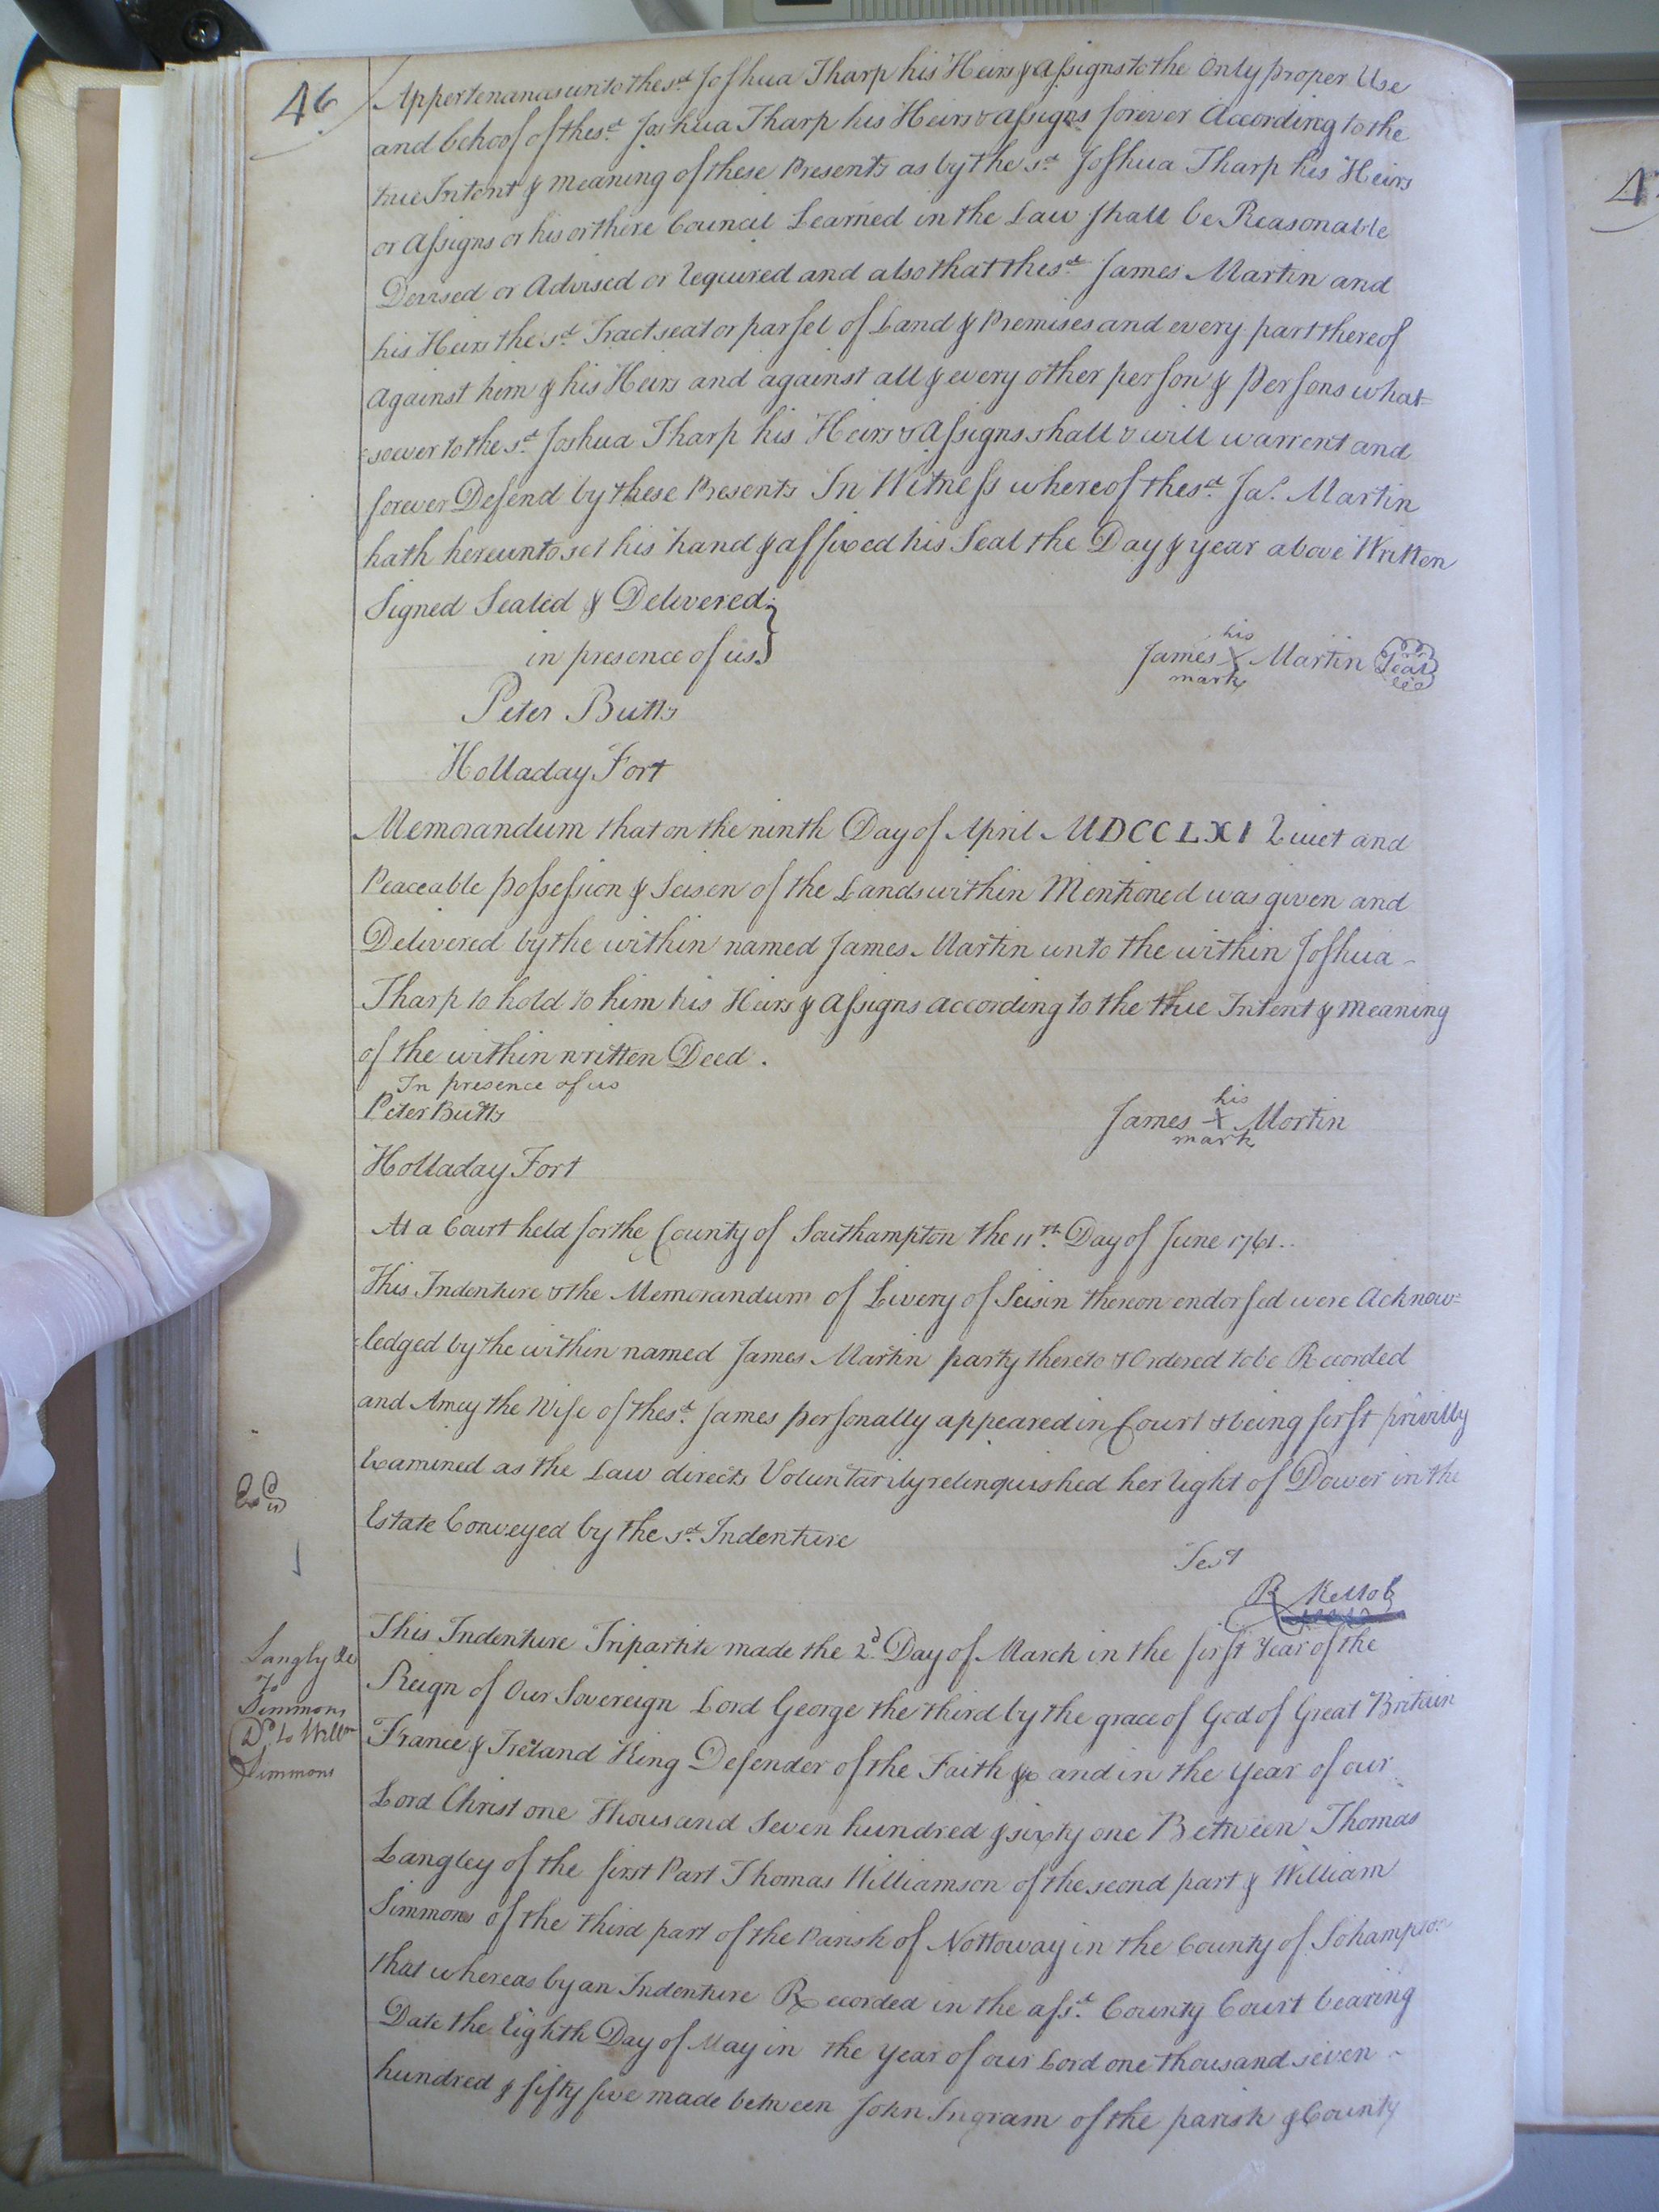 46
Appertenanas unto the sd. Joshua Tharp his Heirs & Assigns to the Only proper Use
and behoof of the sd. Joshua Tharp his Heirs & assigns forever According to the
true Intent & meaning of these Presents as by the sd. Joshua Tharp his Heirs
or Assigns or his or there Council Learned in the Law shall be Reasonable
Devised or Advised or required and also that the sd. James Martin and
his Heirs the sd. Tract seat or parsel of Land & Premises and every part thereof
against him & his Heirs and against all & every other person & persons what=
=soever to the sd. Joshua Tharp his Heirs & Assigns shall & will warrent and
forever Defend by these Presents In Witness whereof the sd. Jas. Martin
hath hereunto set his hand & affixed his Seal the Day & year above Written
Signed Sealed & Delivered
in presence of us
his
James X Martin Seal
mark
Peter Butts
Holladay Fort
Memorandum that on the ninth Day of April MDCCLXI Quiet and
Peaceable possession & Seisen of the Lands within Mentioned was given and
Delivered by the within named James Martin unto the within Joshua -
Tharp to hold to him his Heirs & Assigns according to the true Intent & meaning
of the within written Deed.
In presence of us
Peter Butts
his
James X Mortin
mark
Holladay Fort
At a Court held for the County of Southampton the 11th. Day of June 1761..
This Indenture & the Memorandum of Livery of Seisin thereon endorsed were Acknow=
=ledged by the within named James Martin party thereto & Ordered to be Recorded
and Amey the Wife of the sd. James personally appeared in Court & being first privilly
Examined as the Law directs Voluntarily relinquished her right of Dower in the
Exd
Estate Conveyed by the sd. Indenture
Test
R Kello
Langly &c
To
Simmons
Dd. to Willm
Simmons
This Indenture Tripartite made the 2d. Day of March in the first Year of the
Reign of Our Sovereign Lord George the third by the grace of God of Great Britain
France & Ireland King Defender of the Faith &c and in the year of our
Lord Christ one Thousand Seven hundred & sixty one Between Thomas
Langley of the first Part Thomas Williamson of the second part & William
Simmons of the third part of the Parish of Nottoway in the County of Sohampton
that whereas by an Indenture Recorded in the afsd. County Court bearing
Date the Eighth Day of May in the year of our Lord one thousand seven -
hundred & fifty five made between John Ingram of the parish & County